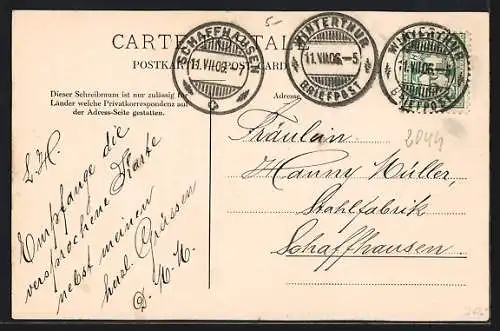 CARTE POSTALE
POSTKARTE
POSTCARD
SCHAFFHAUSEN
11.VII.06.-7
WINTERTHUR
11.VII.06.-5
BRIEFPOST
WINTERTHUR
11.VII.06.-5
BRIEFPOST
5-
Dieser Schreibraum ist nur zulässig für
Länder welche Privatkorrespondenz auf
der Adress-Seite gestatten.
Adresse
2044
L. H.
Empfange die
versprochene Karte
nebst meinen
herzl. Grüssen
D. H. H.
Fräulein
Hanny Müller,
Stahlfabrik
Schaffhausen